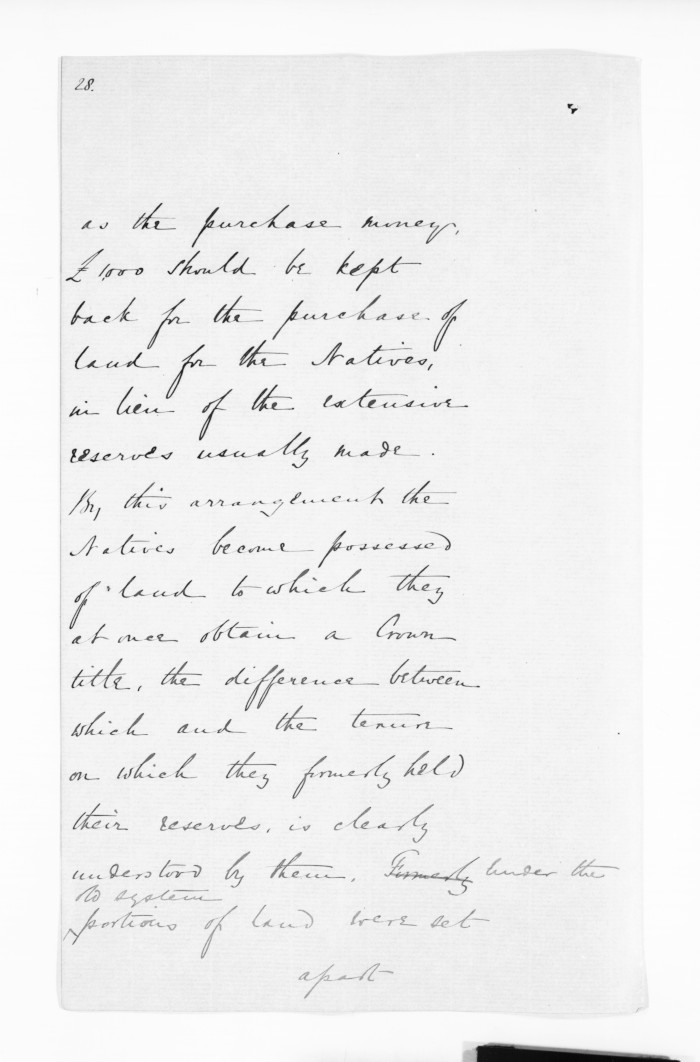 28.
as the purchase money,
£1,000 should be kept
back for the purchase of
land for the Natives,
in lieu of the extensive
reserves usually made.
By this arrangement the
Natives become possessed
of land to which they
at once obtain a Crown
title, the difference between
which and the tenure
on which they formerly held
their reserves, is clearly
understood by them. Formerly Under the
old system
portions of land were set
apart